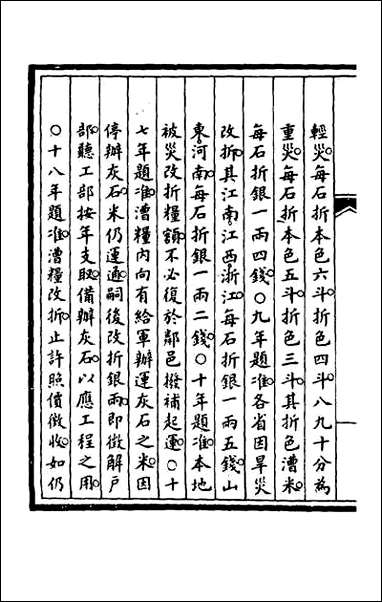 輕災每石折本色六斗折色四斗八九十分為
重災每石折本色五斗折色三斗其折色漕米
每石折銀一兩四錢○九年題准各省因旱災
改折其江南江西浙江每石折銀一兩五錢山
東河南每石折銀一兩二錢○十年題准本地
被災改折糧額不必復於鄰邑撥補起運○十
七年題准漕糧內向有給軍辦運灰石之米因
停辦灰石米仍運通嗣後改折銀兩即徵解戶
部聽工部按年支取備辦灰石以應工程之用
○十八年題准漕糧改折止許照價徵收如仍